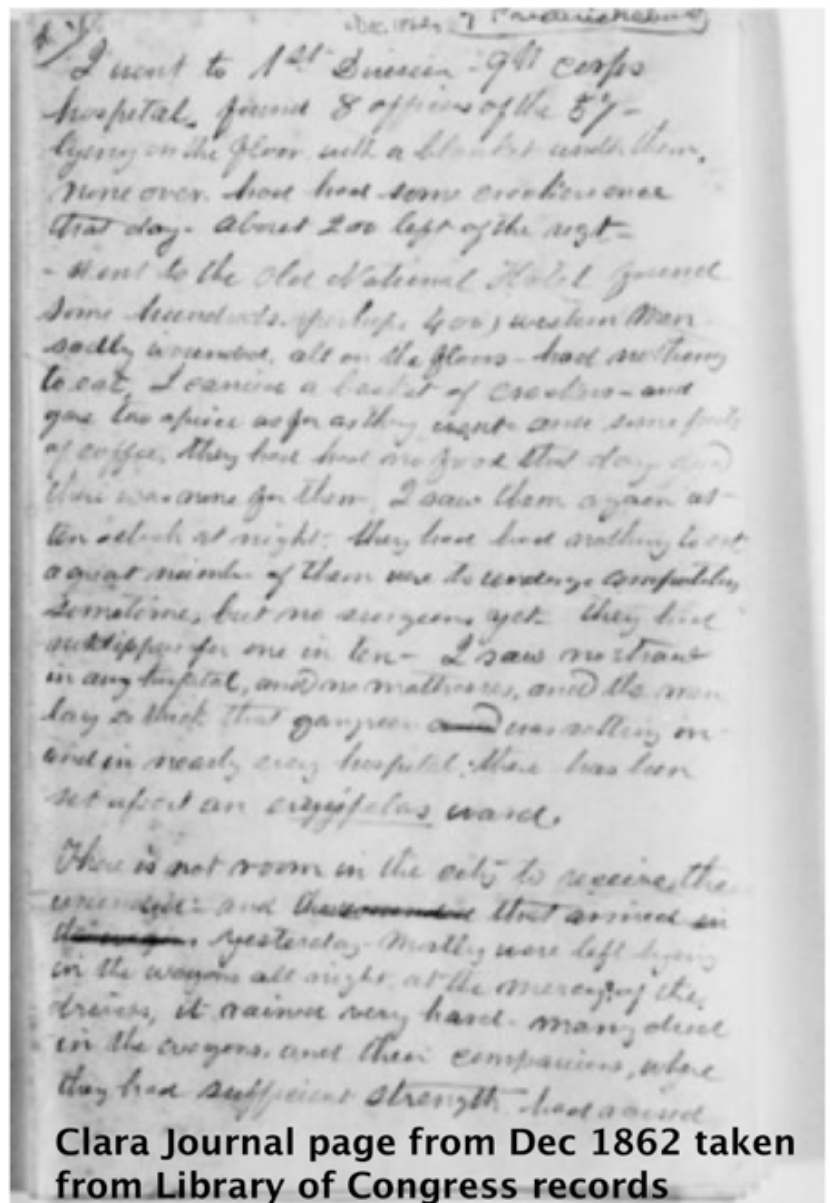 Dec. 1862, Fredericksburg
I went to 1st Division - 9th corps
hospital, found 8 officers of the 57 -
lying on the floor with a blanket under them,
none over. had had some crackers once
that day - about 200 left of the regt -
- went to the Old National Hotel found
some hundreds (perhaps 400) western men
sadly wounded, all on the floors - had nothing
to eat, I carried a basket of crackers - and
gave two apiece as far as they went and some
of coffee, they had had no food that day and
there was none for them, I saw them again at
ten oclock at night, they had had nothing to eat,
a great number of them were to undergo amputation
sometime, but no surgeons yet - they had
for one in ten - I saw no straw
in any hospital, and no mattresses, and the men
lay so thick that gangreen was setting in -
and in nearly every hospital there has been
set apart an erysipelas ward.
There is not room in the city to receive the
wounded - and that arrived
yesterday mostly were left lying
in the wagons all night at the mercy of the
drivers, it rained very hard - many died
in the wagons, and their companions, where
they had sufficient strength had
Clara Journal page from Dec 1862 taken
from Library of Congress records